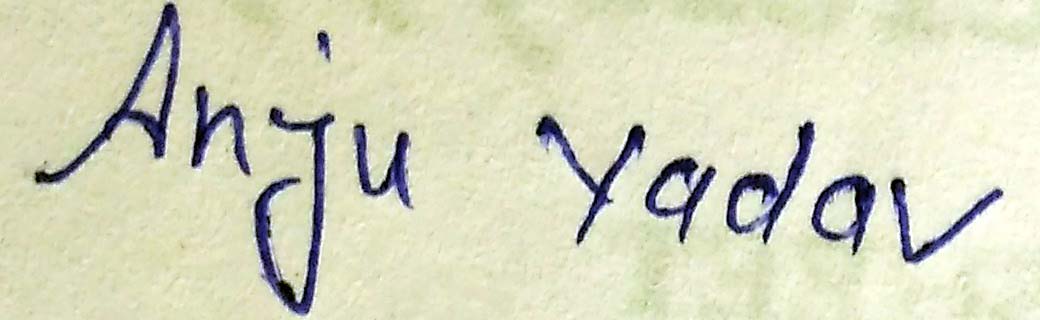 Anju Yadav